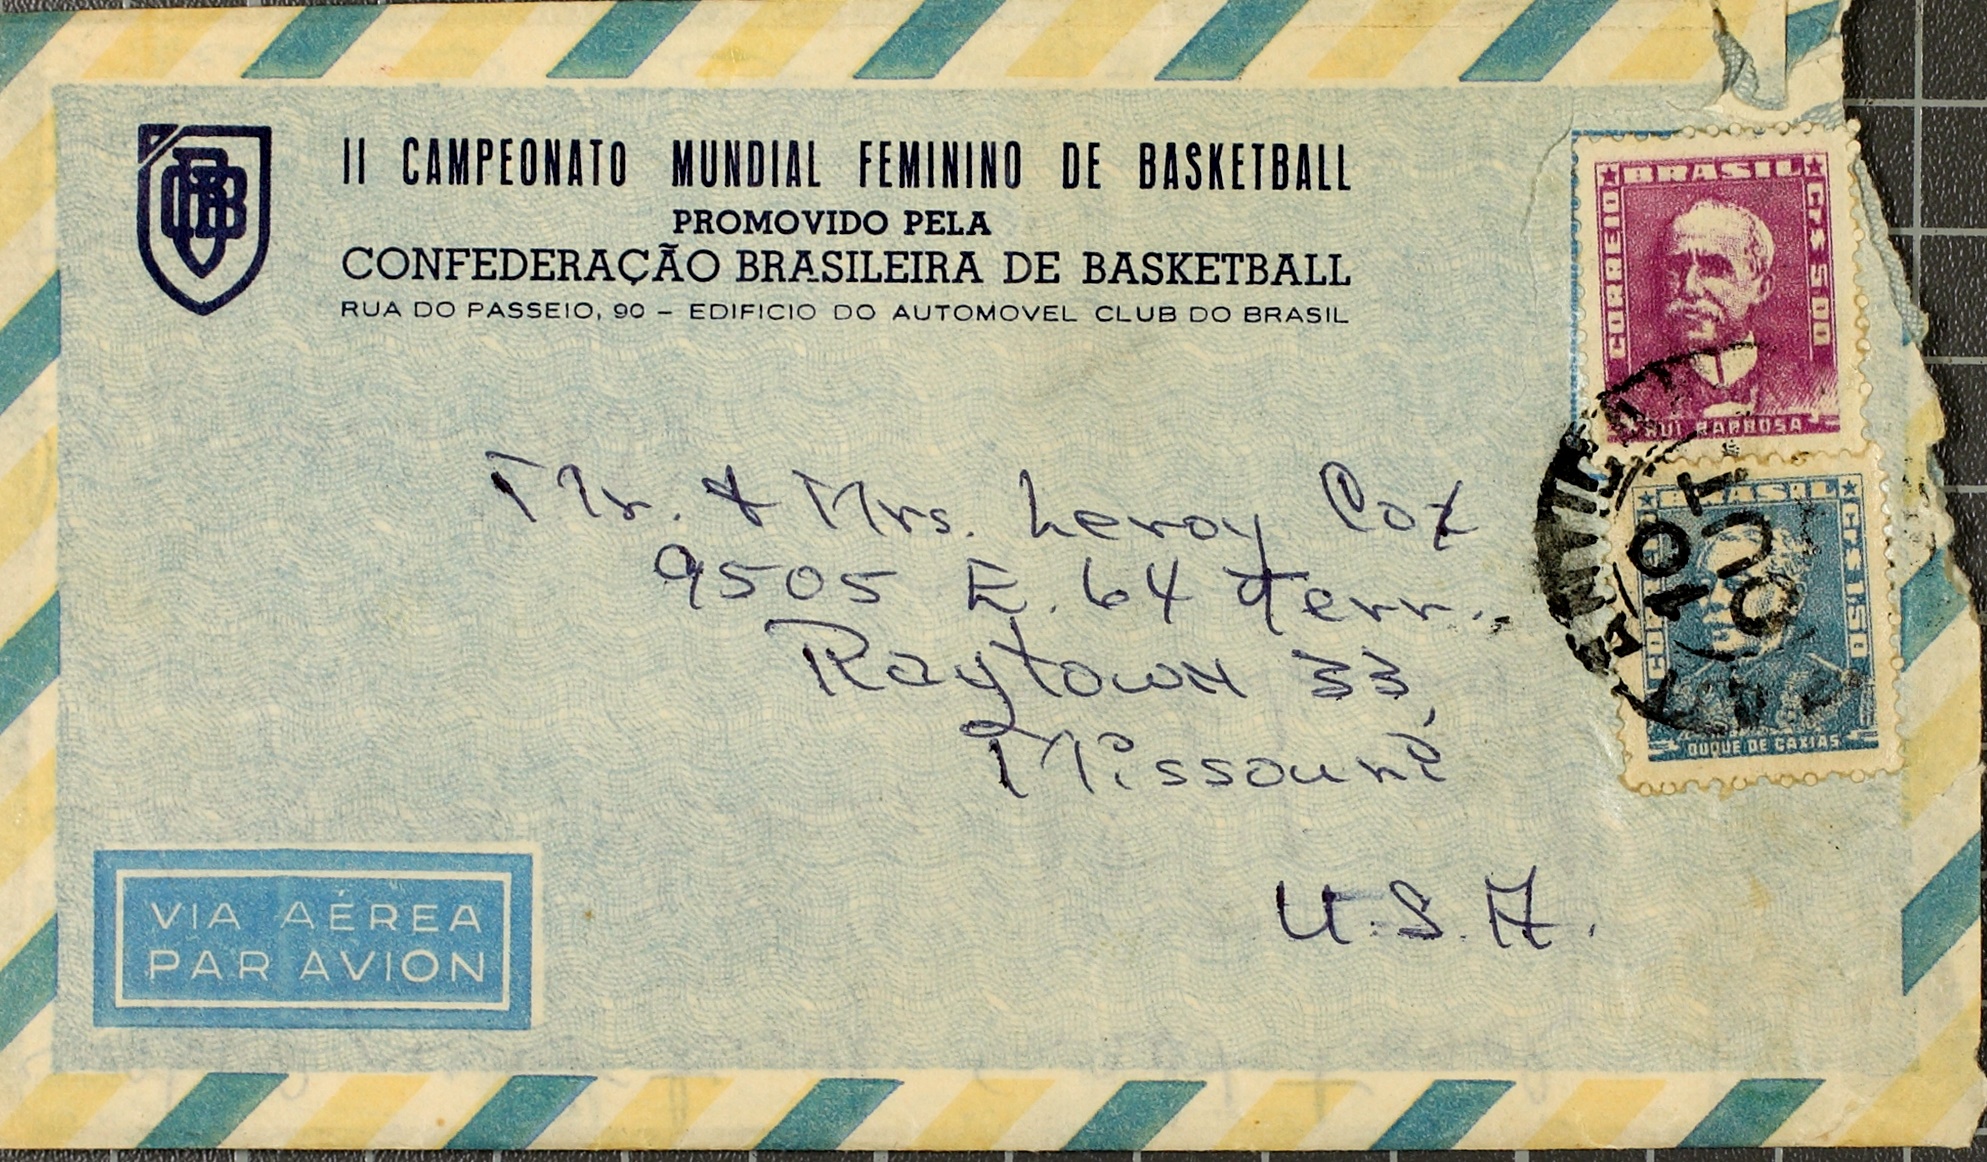 CBB
II CAMPEONATO MUNDIAL FEMININO DE BASKETBALL
PROMOVIDO PELA
CONFEDERAÇÃO BRASILEIRA DE BASKETBALL
RUA DO PASSEIO, 90 – EDIFICIO DO AUTOMOVEL CLUB DO BRASIL
BRASIL
CORREIO
CR$ 5,00
RUI BARBOSA
BRASIL
CR$ 1,50
DUQUE DE CAXIAS
10
OUT
Mr. & Mrs. Leroy Cox
9505 E. 64 Terr.
Raytown 33,
Missouri
U.S.A.
VIA AÉREA
PAR AVION